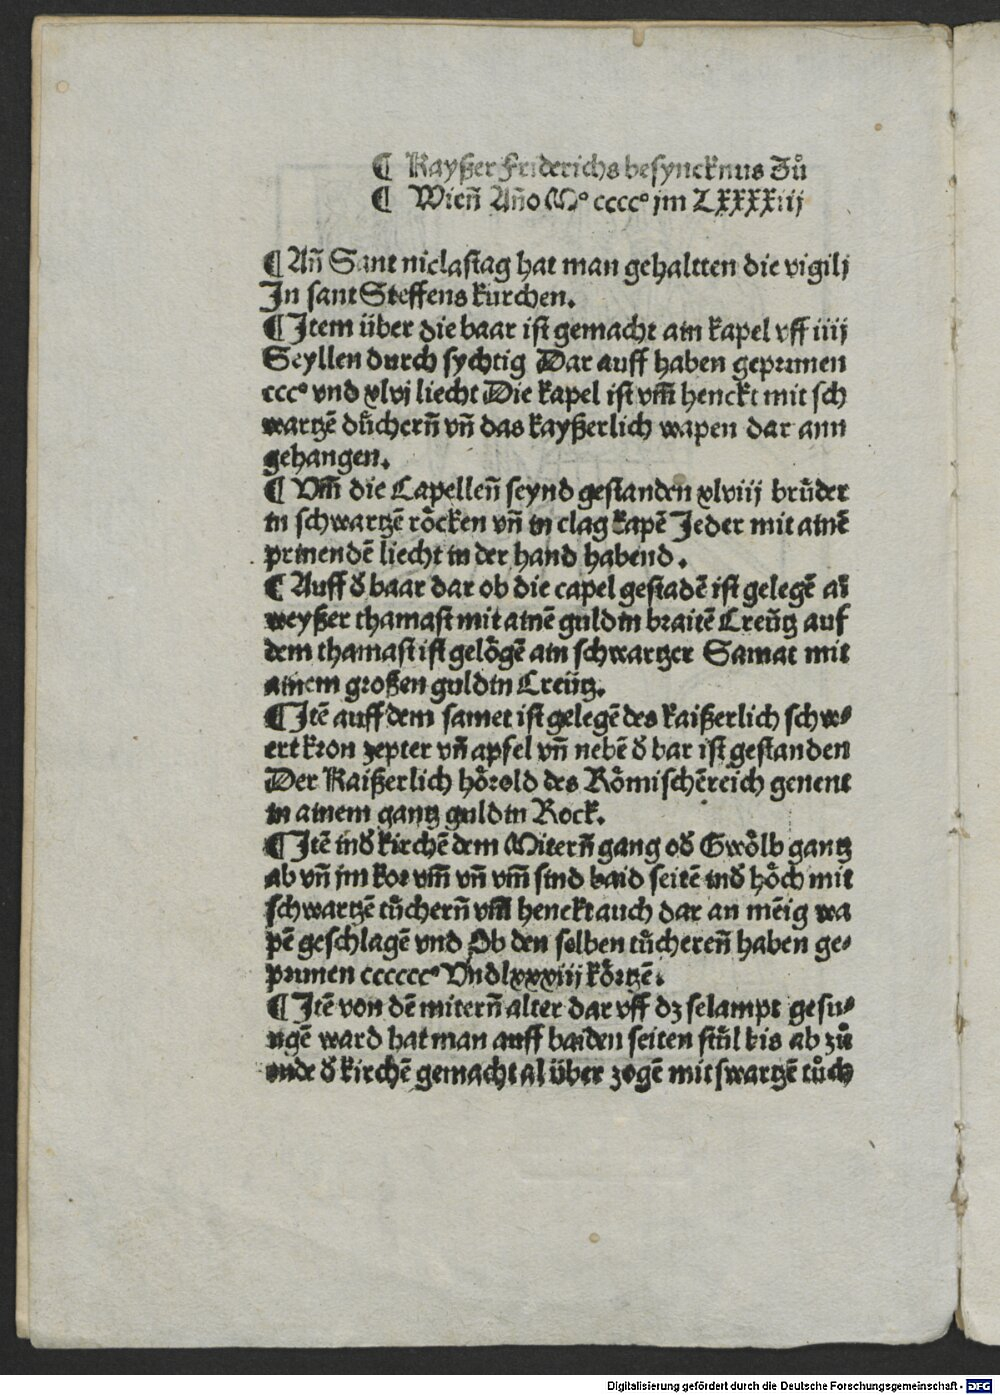 ¶ Kayßer Friderichs besyncknus Zů
¶ Wien̄ An̄o M° cccc° jm LXXXXiij
¶ An̄ Sant niclastag hat man gehaltten die vigilj
In sant Steffens kurchen.
¶ Item über die baar ist gemacht ain kapel vff iiij
Seyllen durch sychtig Dar auff haben geprunen
ccc° vnd xlvj liecht Die kapel ist vm̄ henckt mit sch
wartzē důchern̄ vn̄ das kayßerlich wapen dar ann
gehangen.
¶ Vm̄ die Capellen̄ seynd gestanden xlviij brůder
in schwartzē röcken vn̄ in clag kapē Jeder mit ainē
prinendē liecht in der hand habend.
¶ Auff d̄ baar dar ob die capel gestadē ist gelegē ai̅
weyßer thamast mit ainē guldin braitē Creütz auf
dem thamast ist gelögē ain schwartzer Samat mit
ainem großen guldin Creütz.
¶ Itē auff dem samet ist gelegē des kaißerlich schw⸗
ert kron zepter vn̄ apfel vn̄ nebē d̄ bar ist gestanden
Der Kaißerlich hörold des Römischēreich genent
in ainem gantz guldin Rock.
¶ Itē ind̄ kirchē dem Mitern̄ gang od̄ Gwölb gantz
ab vn̄ jm kor vm̄ vn̄ vm̄ sind baid seitē ind̄ höch mit
schwartzē tůchern̄ vm̄ henckt auch dar an mēig wa
pē geschlagē vnd Ob den selben tůcheren̄ haben ge⸗
prunen cccccc° Vnd lxxxiij körtzē.
¶ Itē von dē mitern̄ alter dar vff dz selampt gesu⸗
ngē ward hat man auff baiden seiten stůl bis ab zů
ende d̄ kirchē gemacht al über zogē mit swartzē tůch
Digitalisierung gefördert durch die Deutsche Forschungsgemeinschaft - DFG